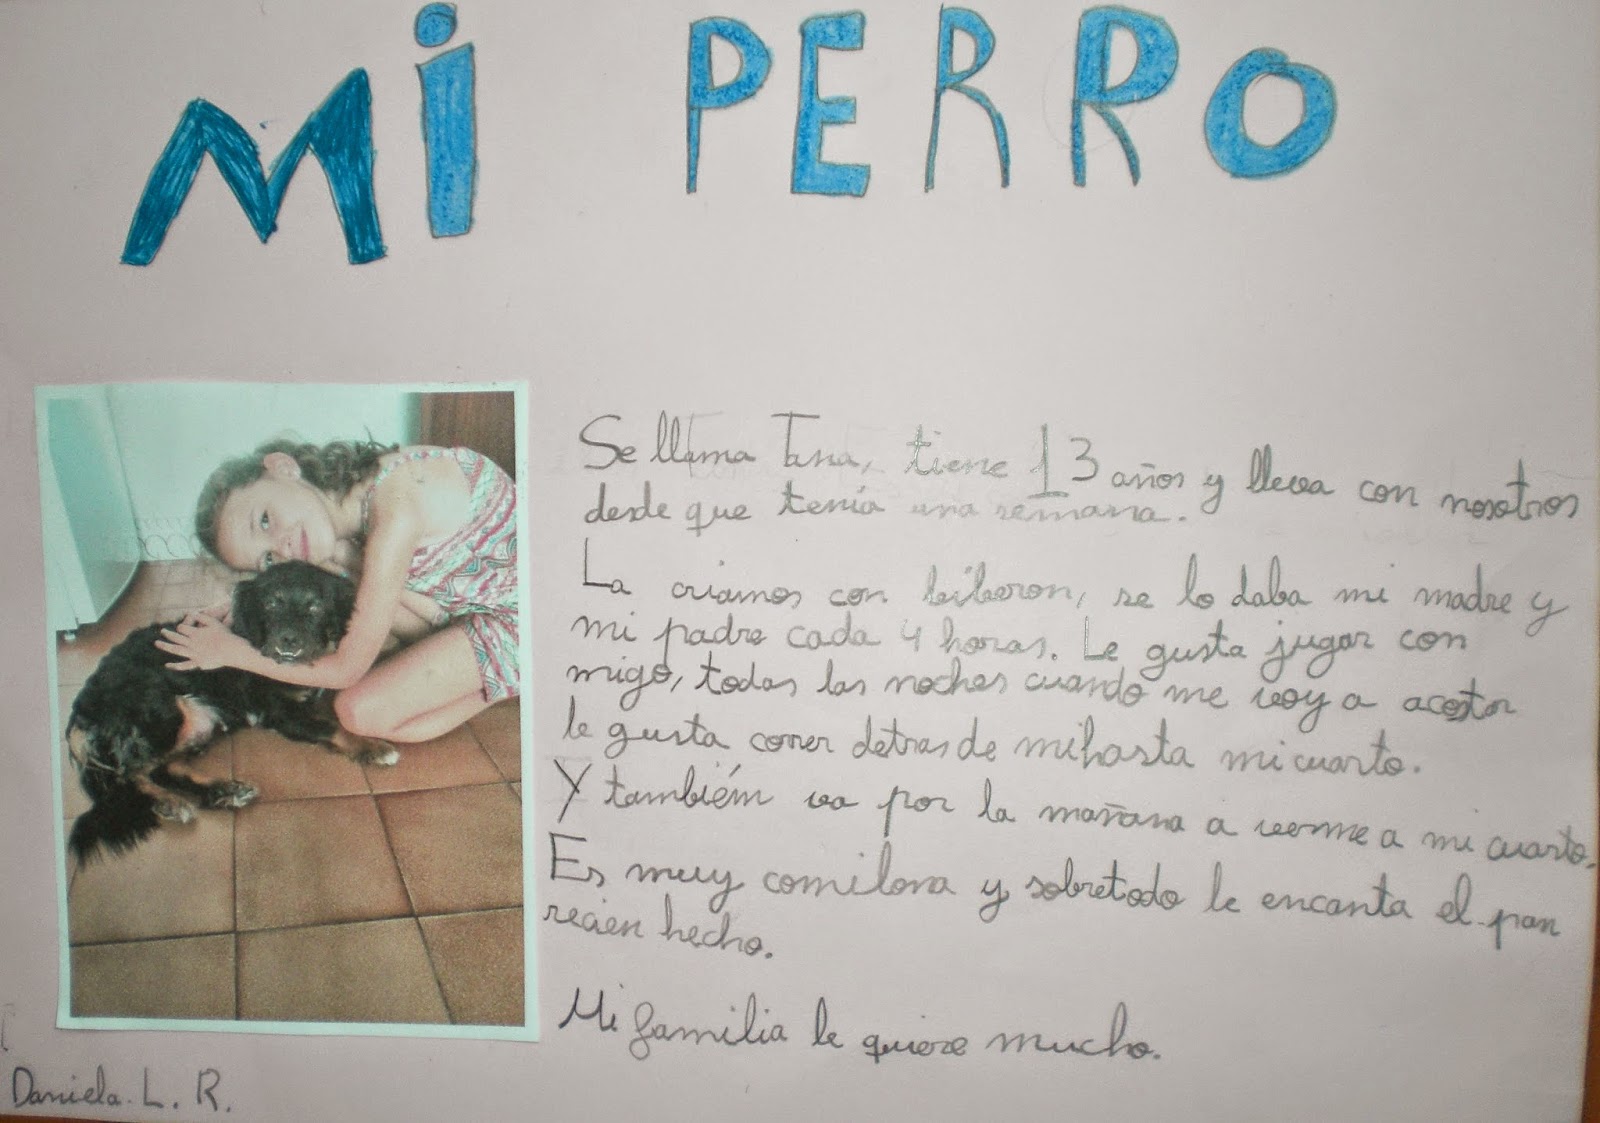 Mi PERRO
Se llama Tana, tiene 13 años y lleva con nosotros
desde que tenía una semana.
La criamos con biberon, se lo daba mi madre y
mi padre cada 4 horas. Le gusta jugar con
migo, todas las noches cuando me voy a acostar
le gusta correr detras de mi hasta mi cuarto.
Y también va por la mañana a verme a mi cuarto.
Es muy comilona y sobretodo le encanta el pan
recien hecho.
Mi familia le quiere mucho.
Daniela. L. R.